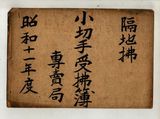 隔地拂
小切手受拂簿
專賣局
昭和十一年度